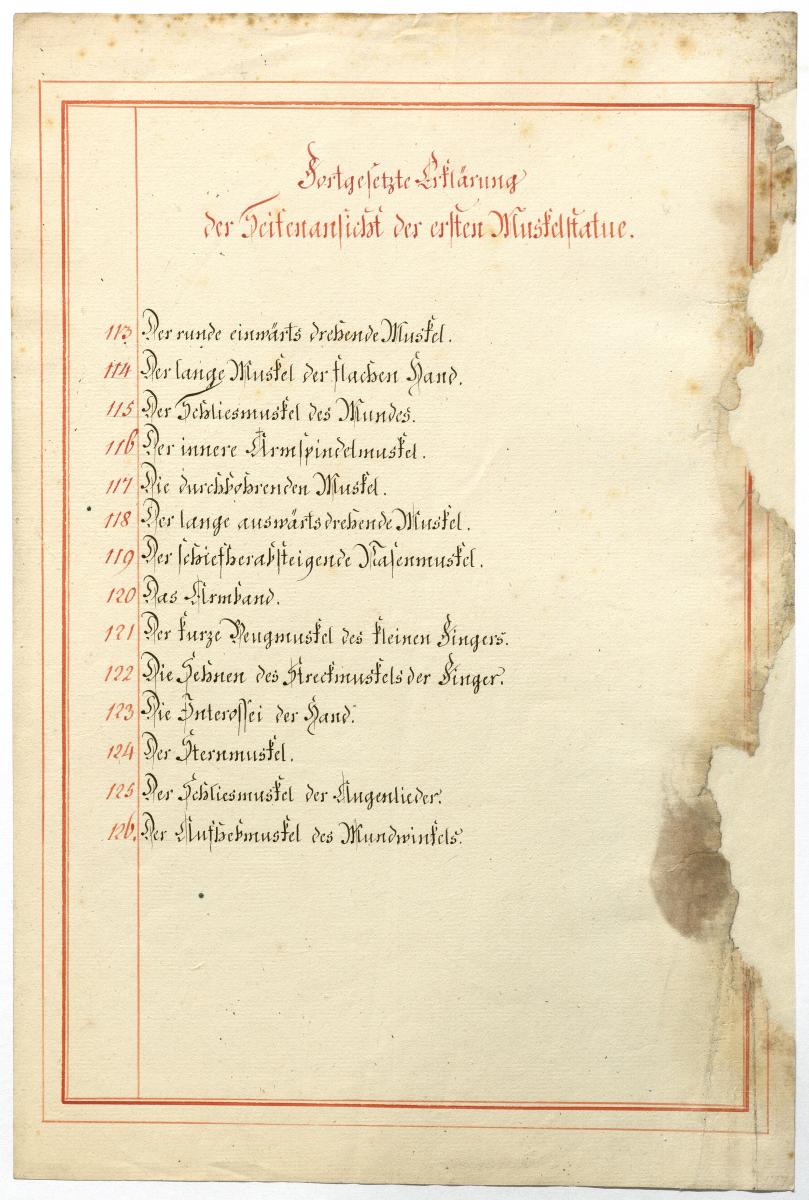 Fortgesetzte Erklärung
der Seitenansicht der ersten Muskelstatue.
113 Der runde einwärts drehende Muskel.
114 Der lange Muskel der flachen Hand.
115 Der Schliesmuskel des Mundes.
116 Der innere Armspindelmuskel.
117 Die durchbohrenden Muskel.
118 Der lange auswärtsdrehende Muskel.
119 Der schiefherabsteigende Nasenmuskel.
120 Das Armband.
121 Der kurze Beugmuskel des kleinen Fingers.
122 Die Sehnen des Streckmuskels der Finger.
123 Die Interossei der Hand.
124 Der Sternmuskel.
125 Der Schliesmuskel der Augenlieder.
126. Der Aufhebmuskel des Mundwinkels.